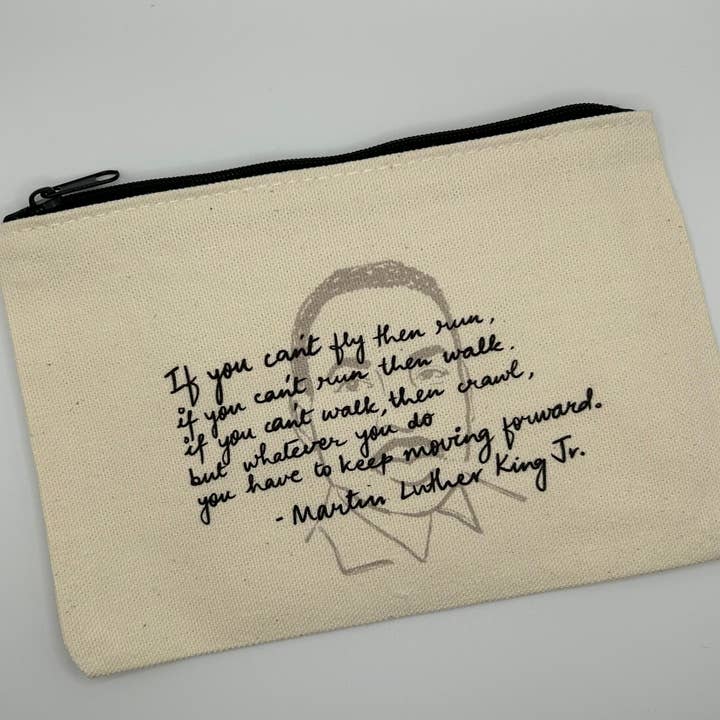 If you can't fly then run,
if you can't run then walk.
if you can't walk, then crawl,
but whatever you do
you have to keep moving forward.
- Martin Luther King Jr.